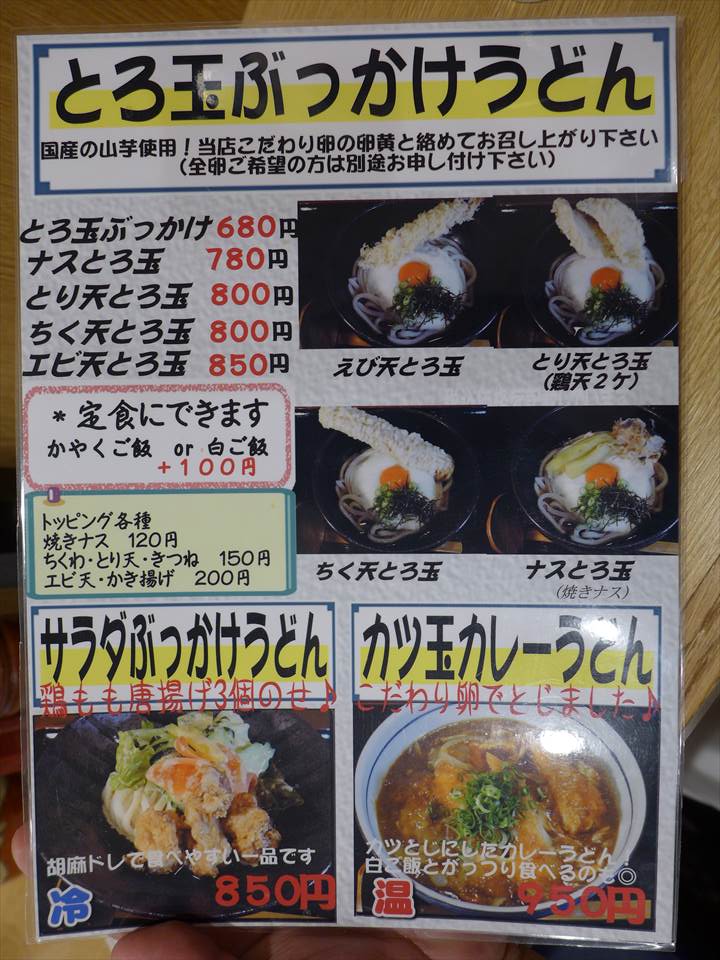 とろ玉ぶっかけうどん
国産の山芋使用！当店こだわり卵の卵黄と絡めてお召し上がり下さい
（全卵ご希望の方は別途お申し付け下さい）
とろ玉ぶっかけ 680円
ナスとろ玉 780円
とり天とろ玉 800円
ちく天とろ玉 800円
エビ天とろ玉 850円
えび天とろ玉
とり天とろ玉
（鶏天２ケ）
ちく天とろ玉
ナスとろ玉
（焼きナス）
＊定食にできます
かやくご飯 or 白ご飯
＋１００円
トッピング各種
焼きナス 120円
ちくわ・とり天・きつね 150円
エビ天・かき揚げ 200円
サラダぶっかけうどん
鶏もも唐揚げ3個のせ♪
胡麻ドレで食べやすい一品です
冷 850円
カツ玉カレーうどん
こだわり卵でとじました♪
カツとじにしたカレーうどん！
白ご飯とがっつり食べるのも◎
温 950円